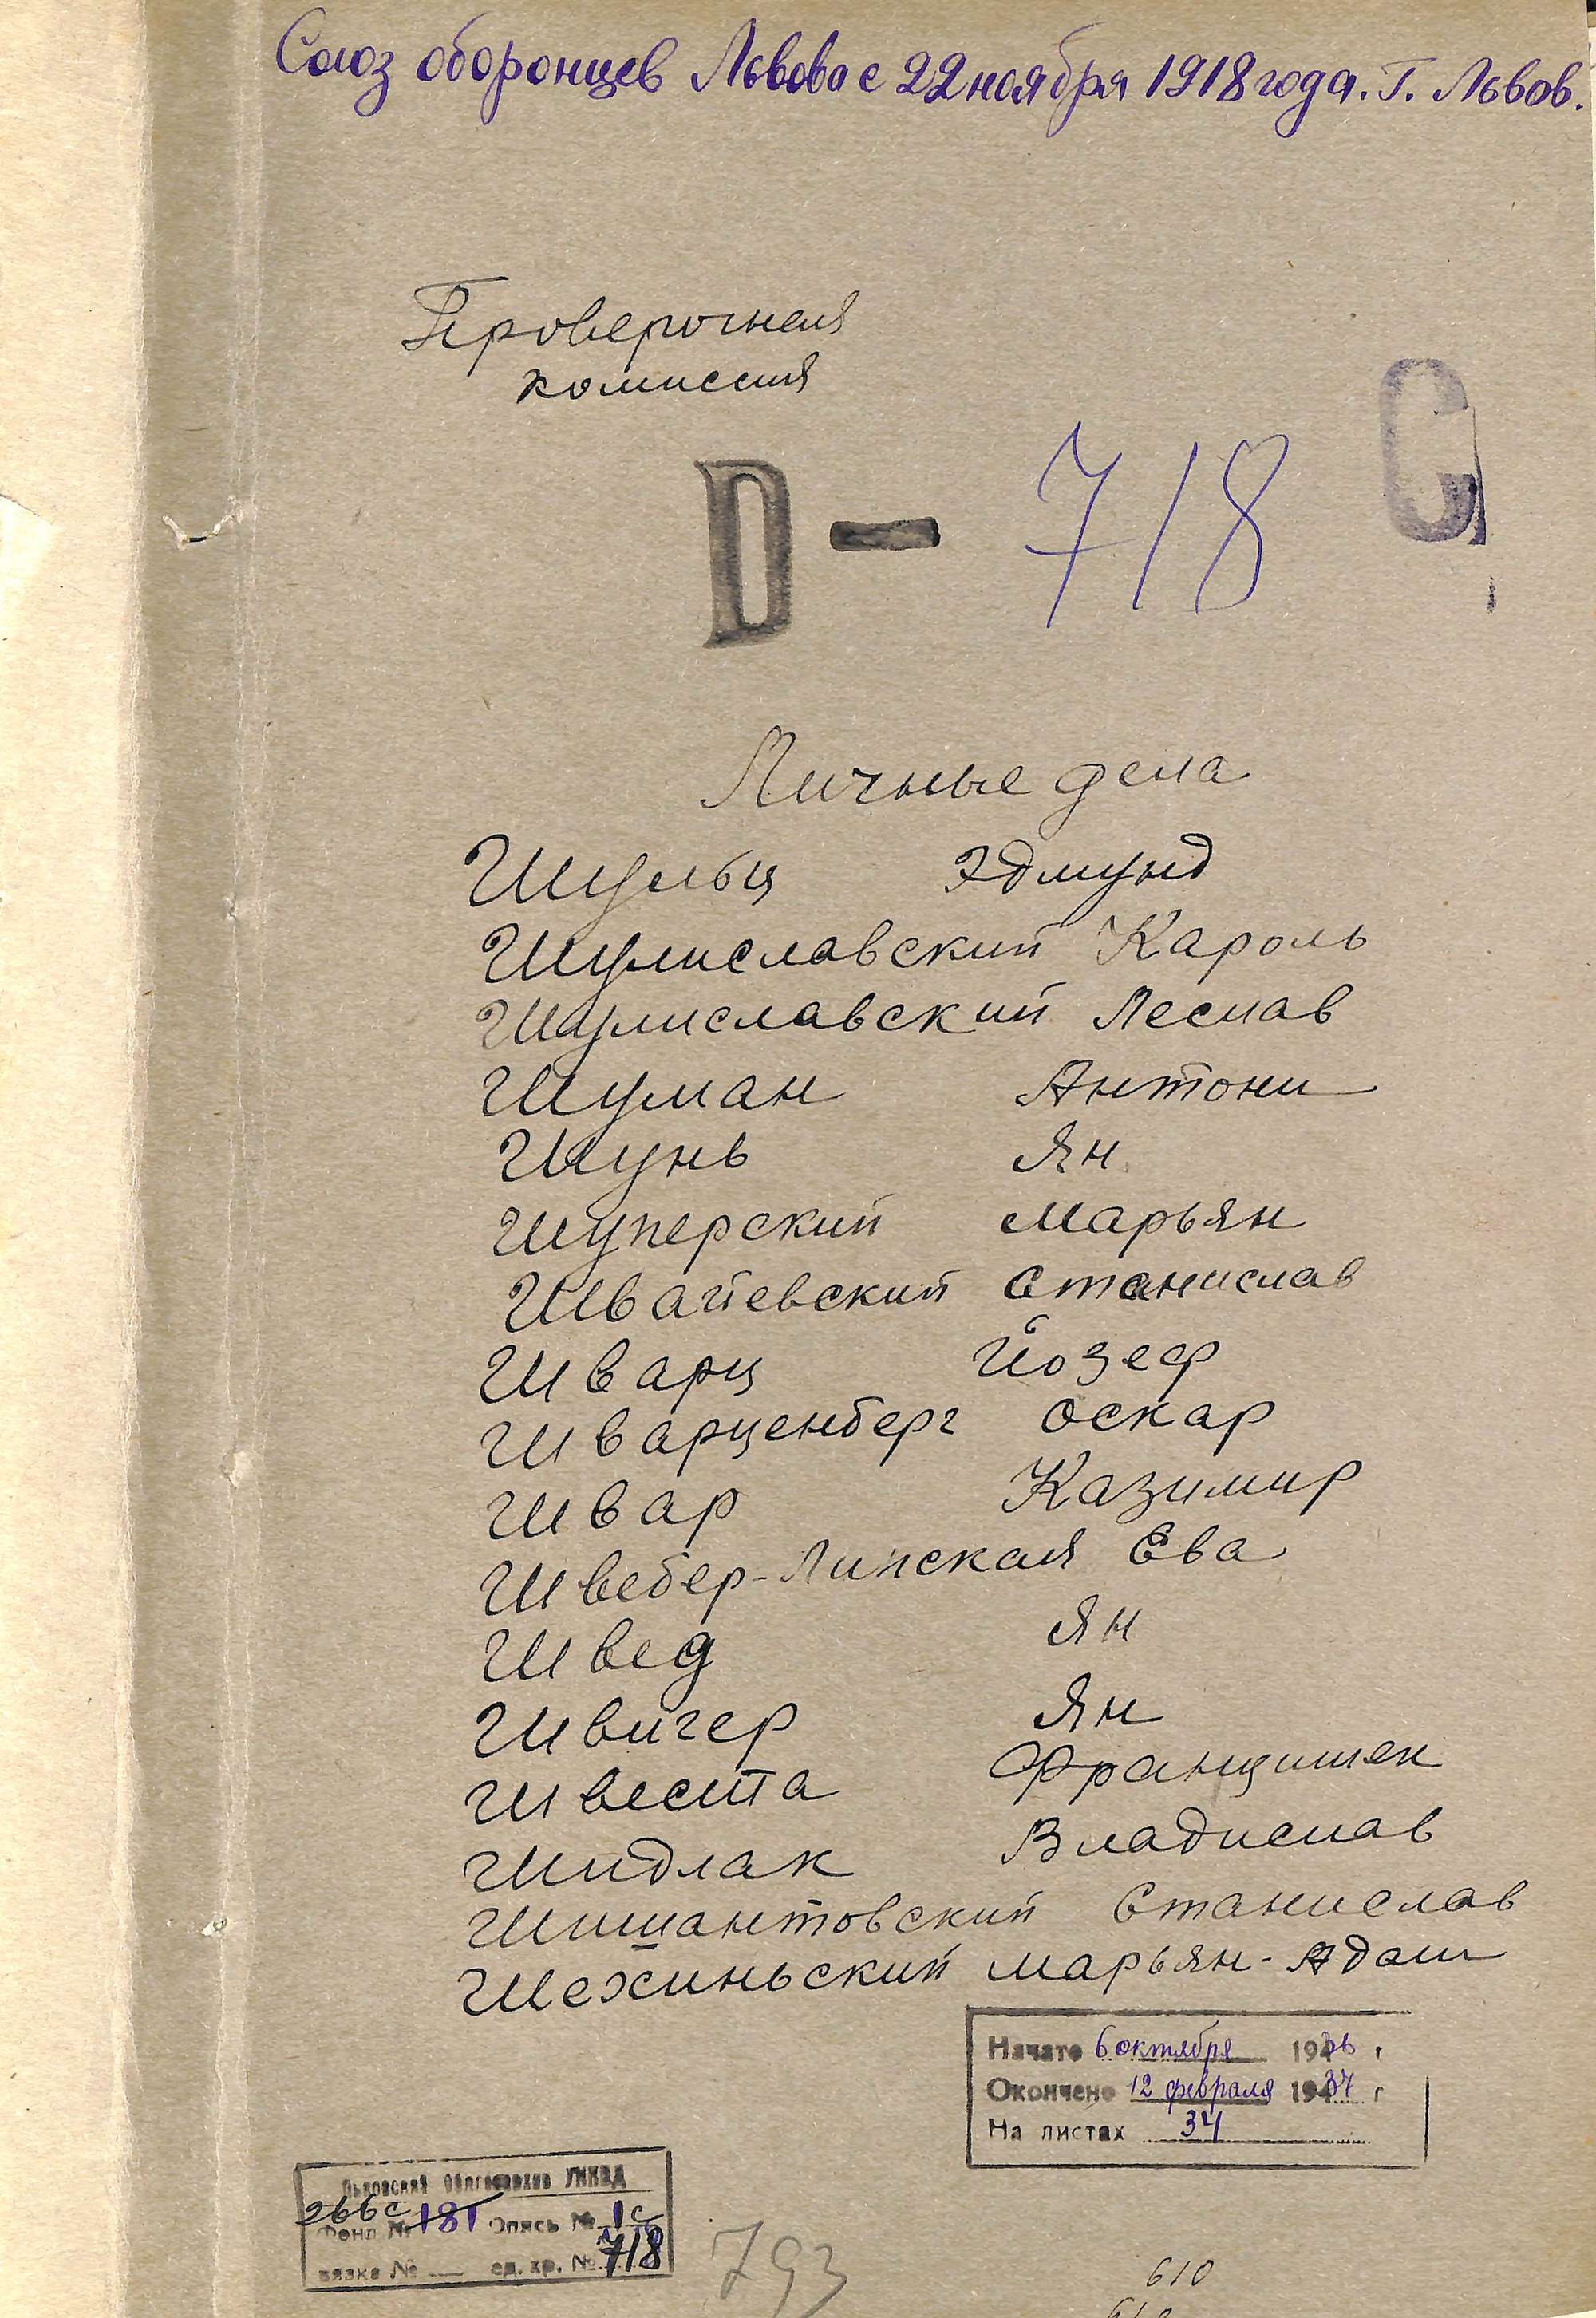 Союз оборонцев Львова с 22 ноября 1918 года. Г. Львов.
Проверочная
комиссия
D — 718
Личные дела
Шульц Эдмунд
Шулиславский Кароль
Шулиславский Леслав
Шуман Антони
Шунь Ян
Шуперский Марьян
Швайевский Станислав
Шварц Йозеф
Шварценберг Оскар
Швар Казимир
Швебер-Липская Ева
Швед Ян
Швигер Ян
Швеста Францишек
Шидлак Владислав
Шишантовский Станислав
Шехиньский Марьян-Адам
Начато 6 октября 1936 г
Окончено 12 февраля 1937 г
На листах 34
Львовский Облгосархив УНКВД
266с
Фонд № 181 Опись № 1с
вязка № ед. хр. № 718
793
610